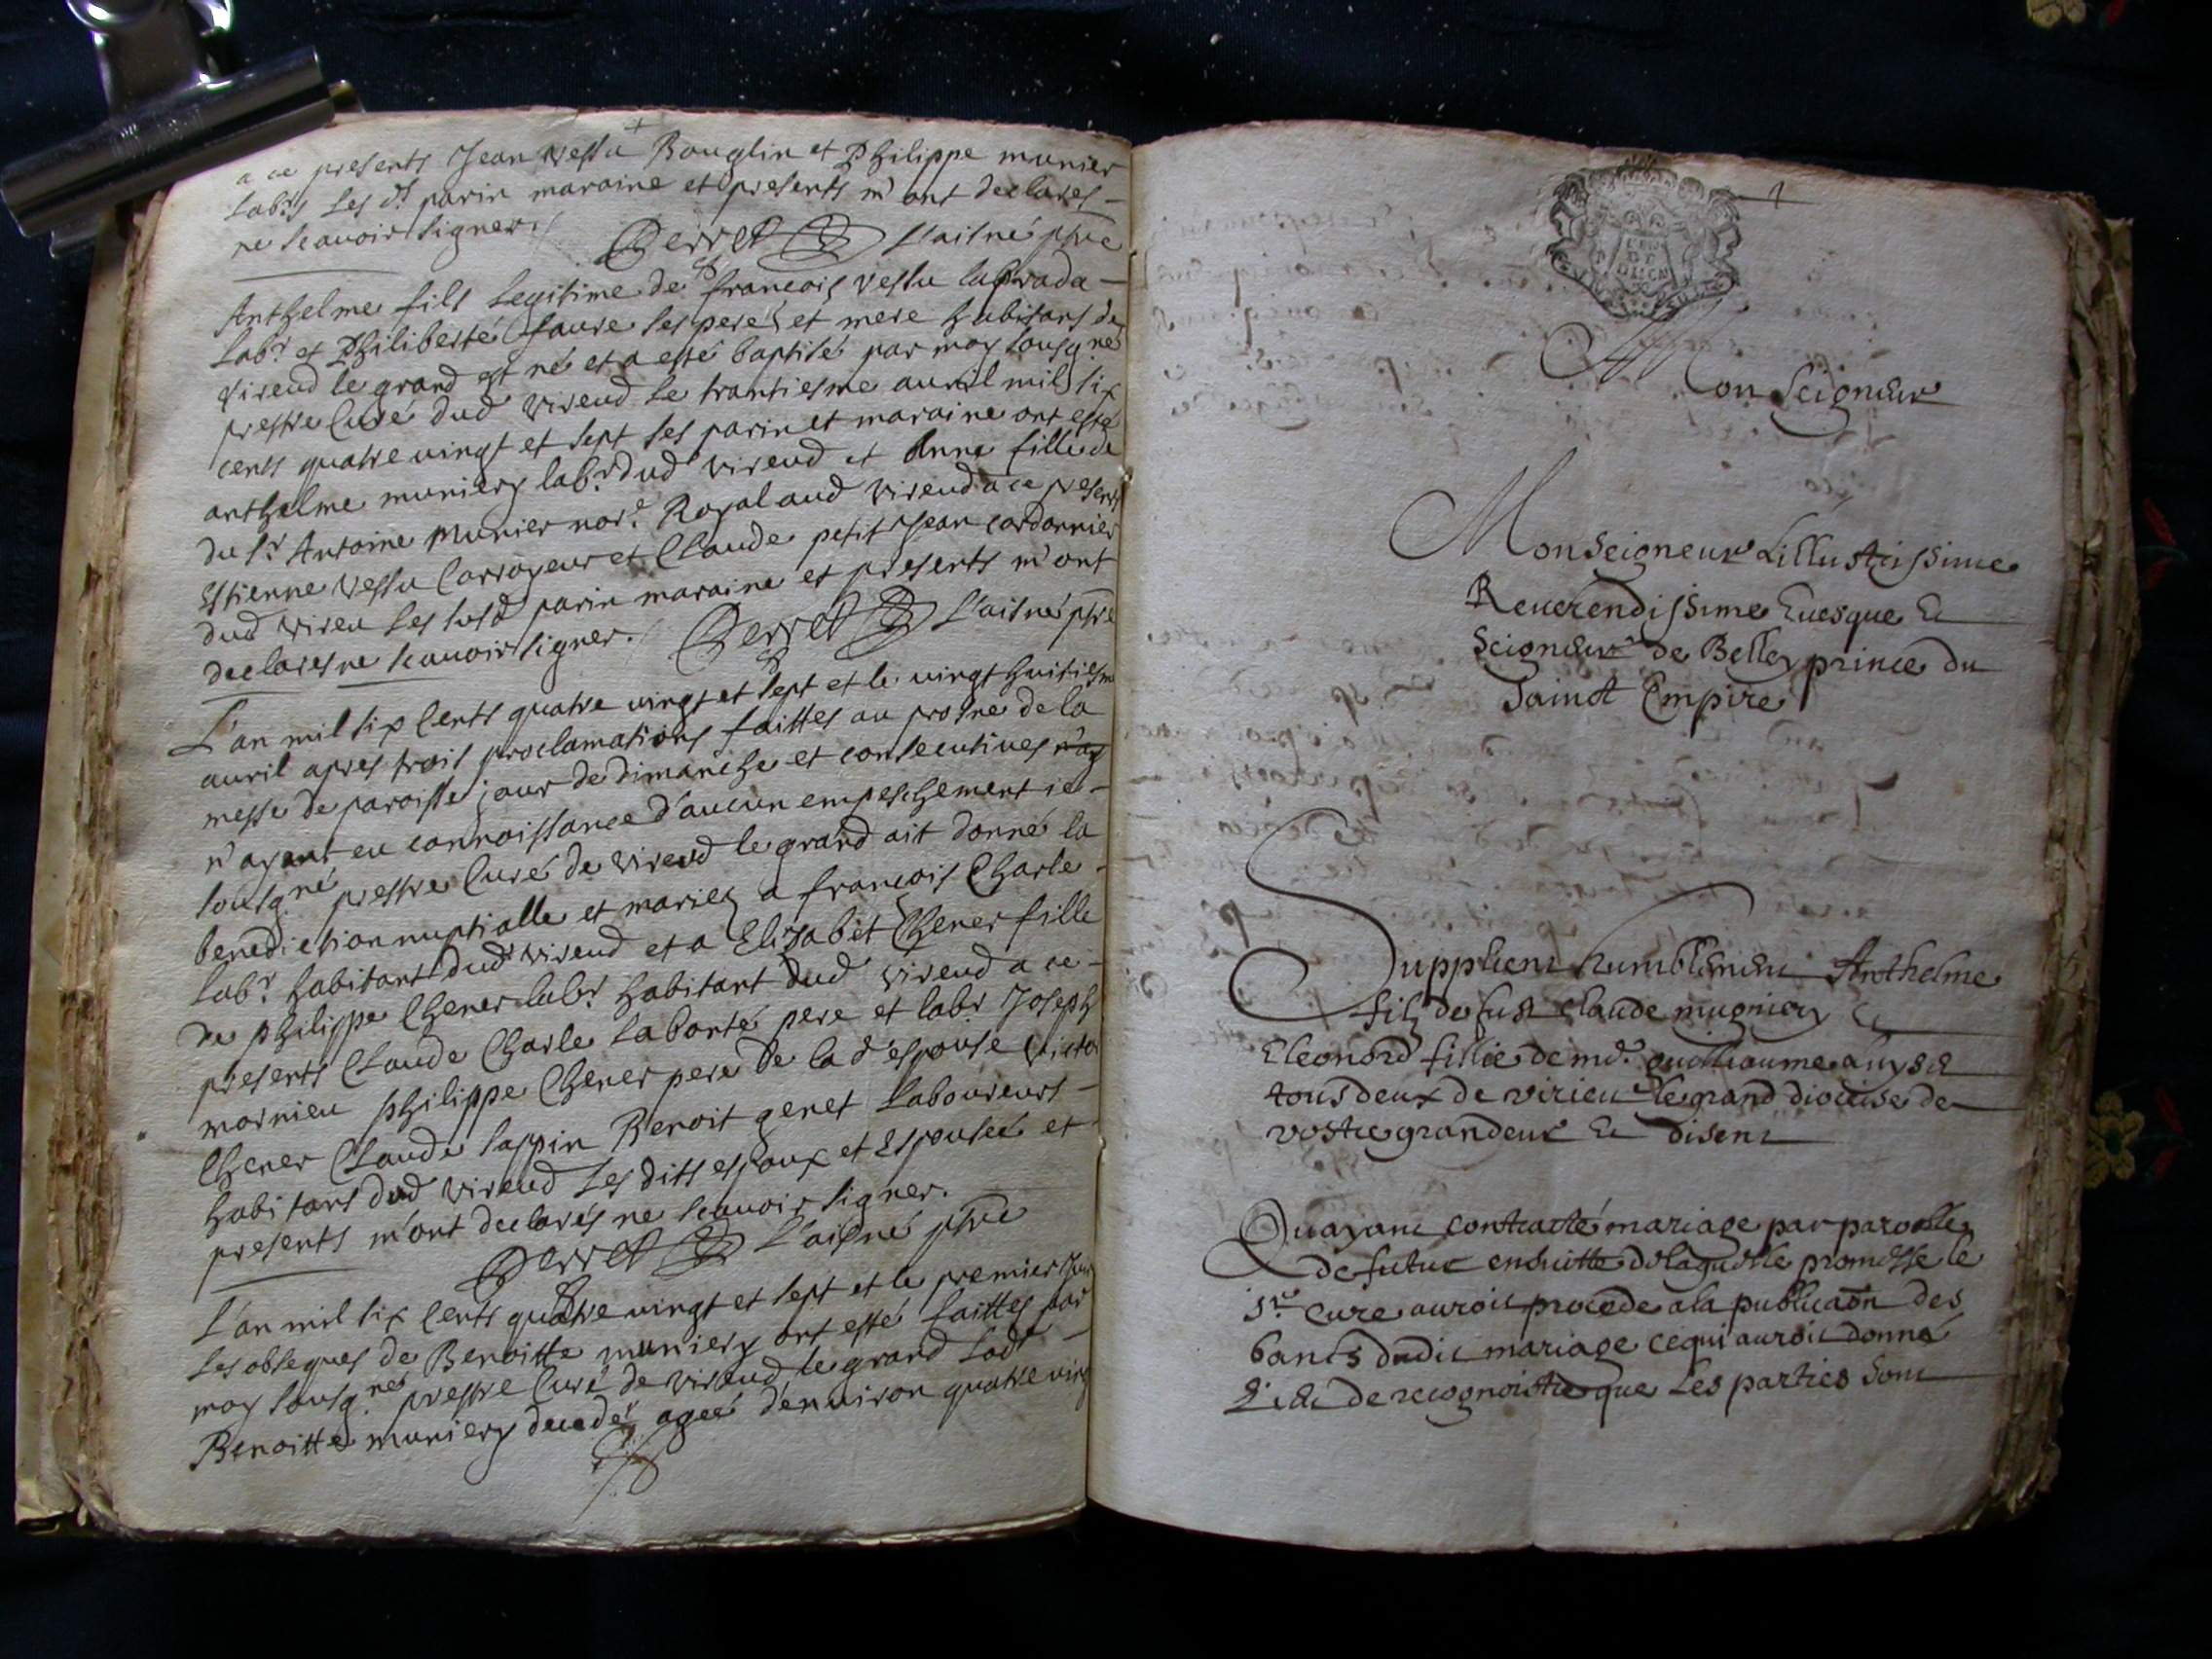 a ce presents Jean vessu Bouglin et Philippe munier
Labrs Les dt parin maraine et presents m'ont declares
ne scauoir signer.
Perret L'aisné ptre
Anthelme fils Legitime de françois vessu
Labr et Philiberte faure ses pere et mere habitans de
vireud le grand est né et a esté baptisé par moy sousgné
prestre Curé dud vireud Le trantiesme auril mil six
cents quatre vingt et sept ses parin et maraine ont esté
anthelme muniery labr dud vireud et Anne fille de
du sr Antoine Munier nore Royal aud vireud a ce presents
Estienne vessu Corroyeur et Claude petit Jean cordonnier
dud vireu Les susd parin maraine et presents m'ont
declares ne scauoir signer.
Perret L'aisné ptre
L'an mil six Cents quatre vingt et sept et le vingt huitiesme
auril apres trois proclamations faittes au prosne de la
messe de paroisse jour de dimanche et consecutives n'ay
n'ayant eu connoissance d'aucun empeschement ie
sousgné prestre Curé de vireud le grand ait donné la
benediction nuptialle et mariez a françois Charle
Labr habitant dud vireud et a Elizabet Chener fille
de philippe Chener labr habitant dud vireud a ce
presents Claude Charle Laborté pere et labr Joseph
mornieu philippe Chener pere de la d espouse victor
Chener Claude sappin Benoit genet Laboureurs
habitans dud vireud Les dits espoux et Espousée et
presents m'ont declarés ne scauoir signer.
Perret L'aisné ptre
L'an mil six Cents quatre vingt et sept et le premier Jour
Les obseques de Benoitte muniery ont esté faittes par
moy sousgné prestre Curé de vireud le grand Lad
Benoitte muniery decedé agee d'enuiron quatre ving
Monseigneur
Monseigneur Lillustrissime
Reuerendissime Euesque Et
Seigneur de Belley prince du
Sainct Empire
Supplient humblement Anthelme
filz de fust Claude mugniery Et
Eleonord fillie de md guilliaume
tous deux de virieu le grand diocise de
vostre grandeur Et disent
Quayant contracté mariage par parolles
de futur ensuitte de laquelle promesse le
Sr Cure auroit procede a la publicaon des
bancs dudit mariage ce qui auroit donné
de recognoistre que Les parties sont